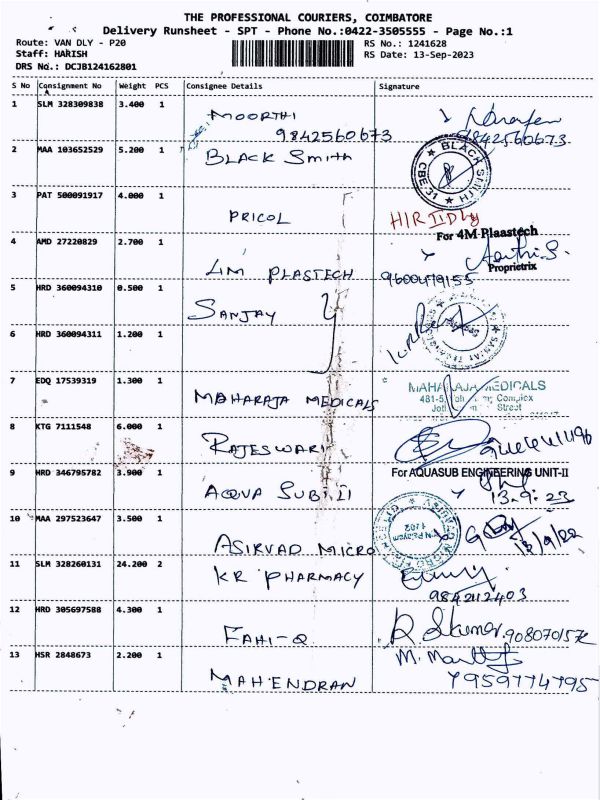 THE PROFESSIONAL COURIERS, COIMBATORE
Delivery Runsheet - SPT - Phone No.:0422-3505555 - Page No.:1
Route: VAN DLY - P20
RS No.: 1241628
Staff: HARISH
RS Date: 13-Sep-2023
DRS No.: DCJB124162801
S No Consignment No Weight PCS Consignee Details Signature
1 SLM 328309838 3.400 1 MOORTHI
9842560673 9842560673
2 MAA 103652529 5.200 1 BLACK Smith BLACK SMITH CBE 31
3 PAT 500091917 4.000 1 PRICOL
For 4M Plaastech
4 AMD 27220829 2.700 1 4M PLASTECH
Proprietrix
5 HRD 360094310 0.500 1 SANJAY
6 HRD 360094311 1.200 1
7 EDQ 17539319 1.300 1 MAHARAJA MEDICALS MAHARAJA MEDICALS
Complex
Street
8 KTG 7111548 6.000 1 RAJESWARI
For AQUASUB ENGINEERING UNIT-II
9 HRD 346795782 3.900 1 AQUA SUB II 13.9.23
10 MAA 297523647 3.500 1 ASIRVAD MICRO
11 SLM 328260131 24.200 2 KR PHARMACY
9842112403
12 HRD 305697588 4.300 1 FAHI-Q
13 HSR 2848673 2.200 1 MAHENDRAN 7959774795